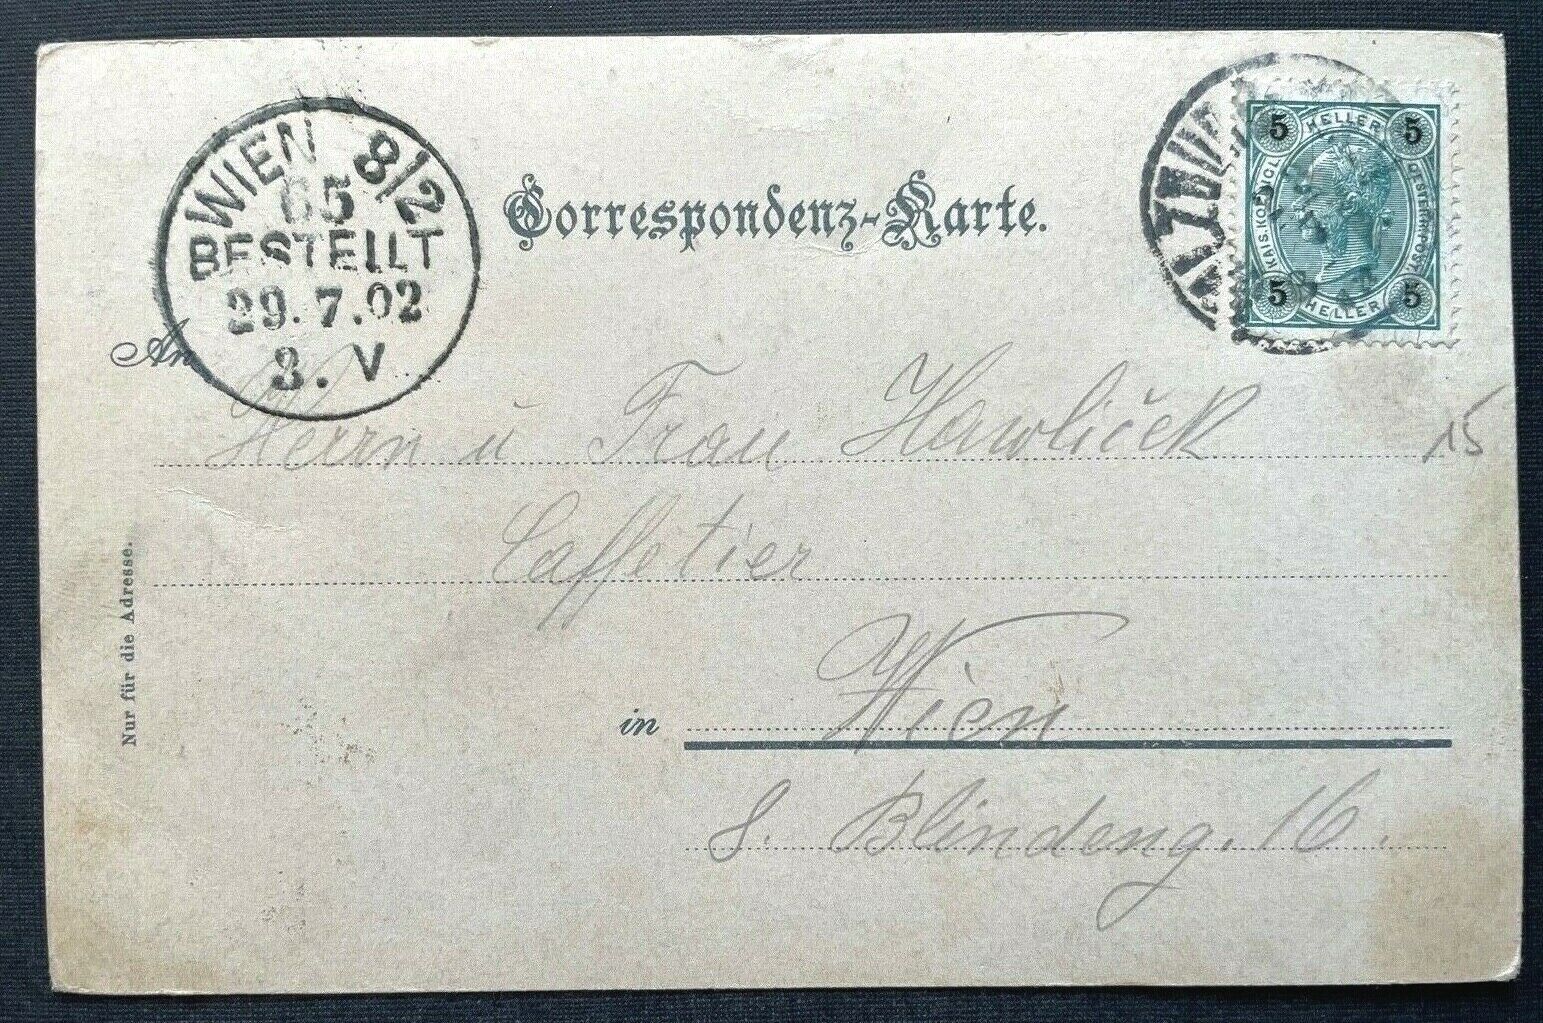 WIEN 8/2
65
BESTELLT
29. 7. 02
3. V
Correspondenz-Karte.
5 KELLER 5
KAIS. KOENIGL. OESTERR. POST.
5 HELLER 5
An
Herrn u Frau Hawliček
15
Caffetier
in Wien
8. Blindeng. 16.
Nur für die Adresse.